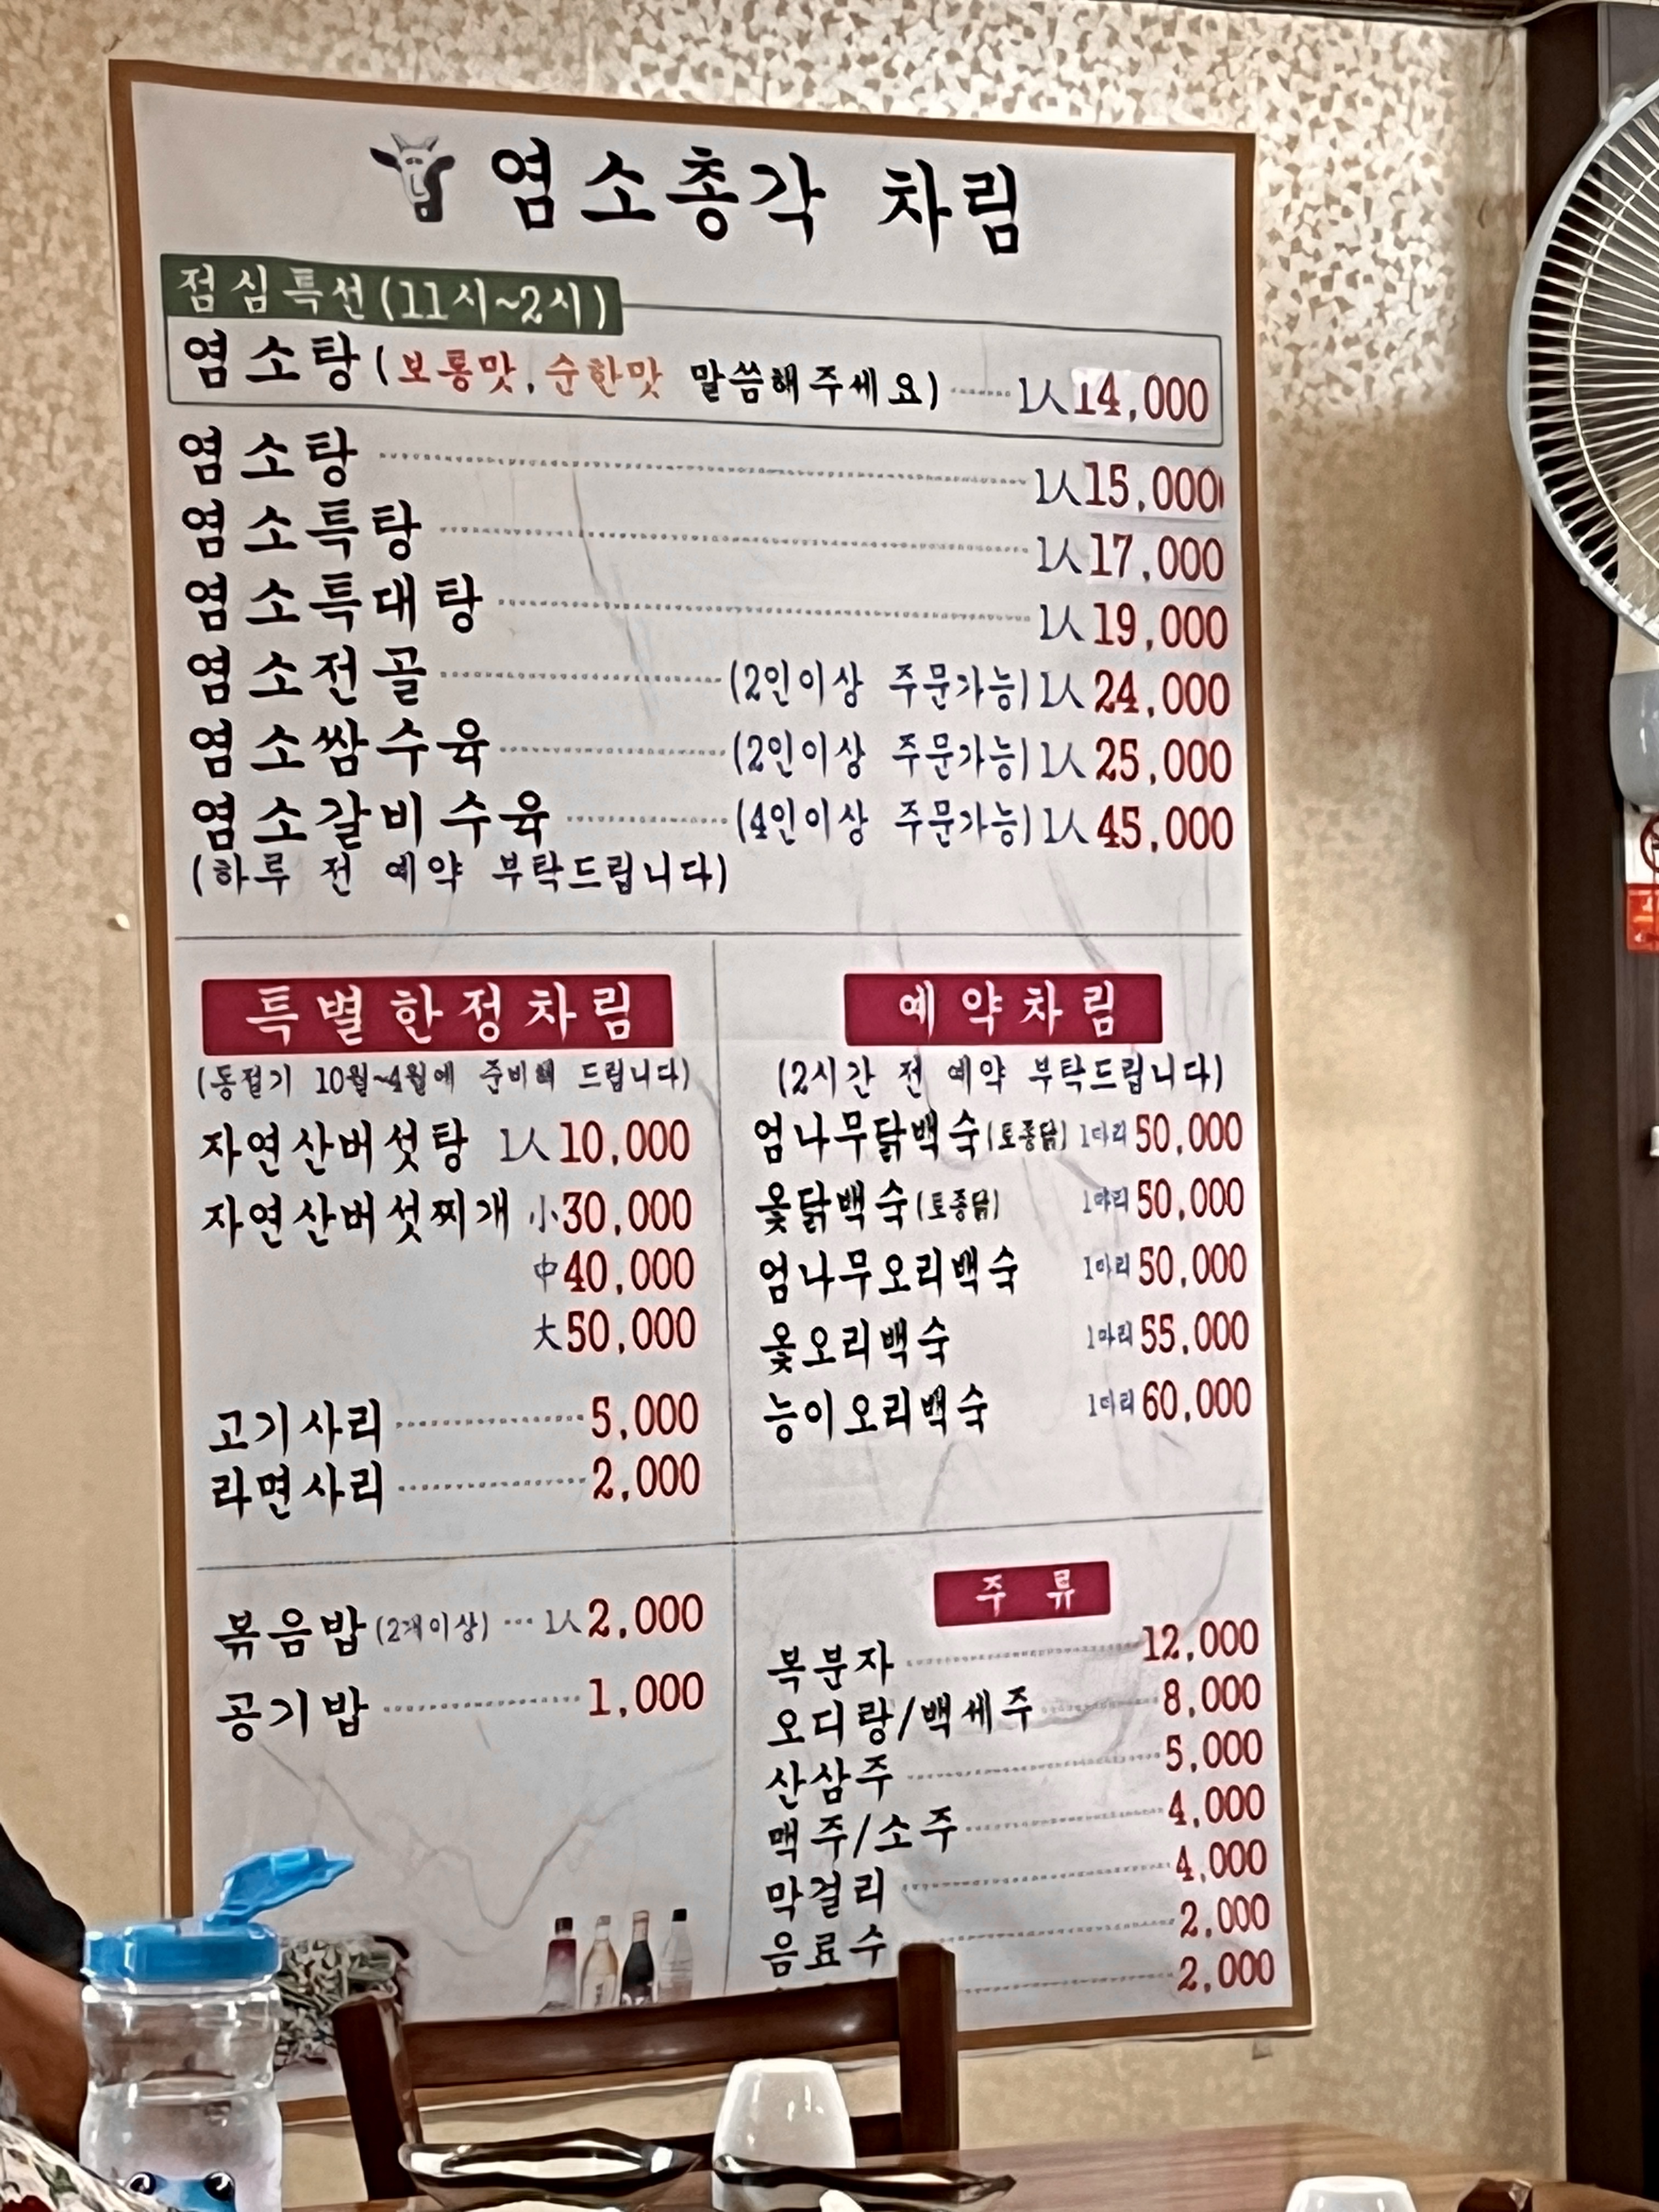 염소총각 차림
점심특선(11시~2시)
염소탕(보통맛,순한맛 말씀해주세요) 1人 14,000
염소탕 1人 15,000
염소특탕 1人 17,000
염소특대탕 1人 19,000
염소전골 (2인이상 주문가능) 1人 24,000
염소쌈수육 (2인이상 주문가능) 1人 25,000
염소갈비수육 (4인이상 주문가능) 1人 45,000
(하루 전 예약 부탁드립니다)
특별한정차림
(동절기 10월~4월에 준비해 드립니다)
자연산버섯탕 1人 10,000
자연산버섯찌개 小 30,000
中 40,000
大 50,000
고기사리 5,000
라면사리 2,000
예약차림
(2시간 전 예약 부탁드립니다)
엄나무닭백숙(토종닭) 1마리 50,000
옻닭백숙(토종닭) 1마리 50,000
엄나무오리백숙 1마리 50,000
옻오리백숙 1마리 55,000
능이오리백숙 1마리 60,000
볶음밥(2개이상) 1人 2,000
공기밥 1,000
주류
복분자 12,000
오디랑/백세주 8,000
산삼주 5,000
맥주/소주 4,000
막걸리 4,000
음료수 2,000
2,000